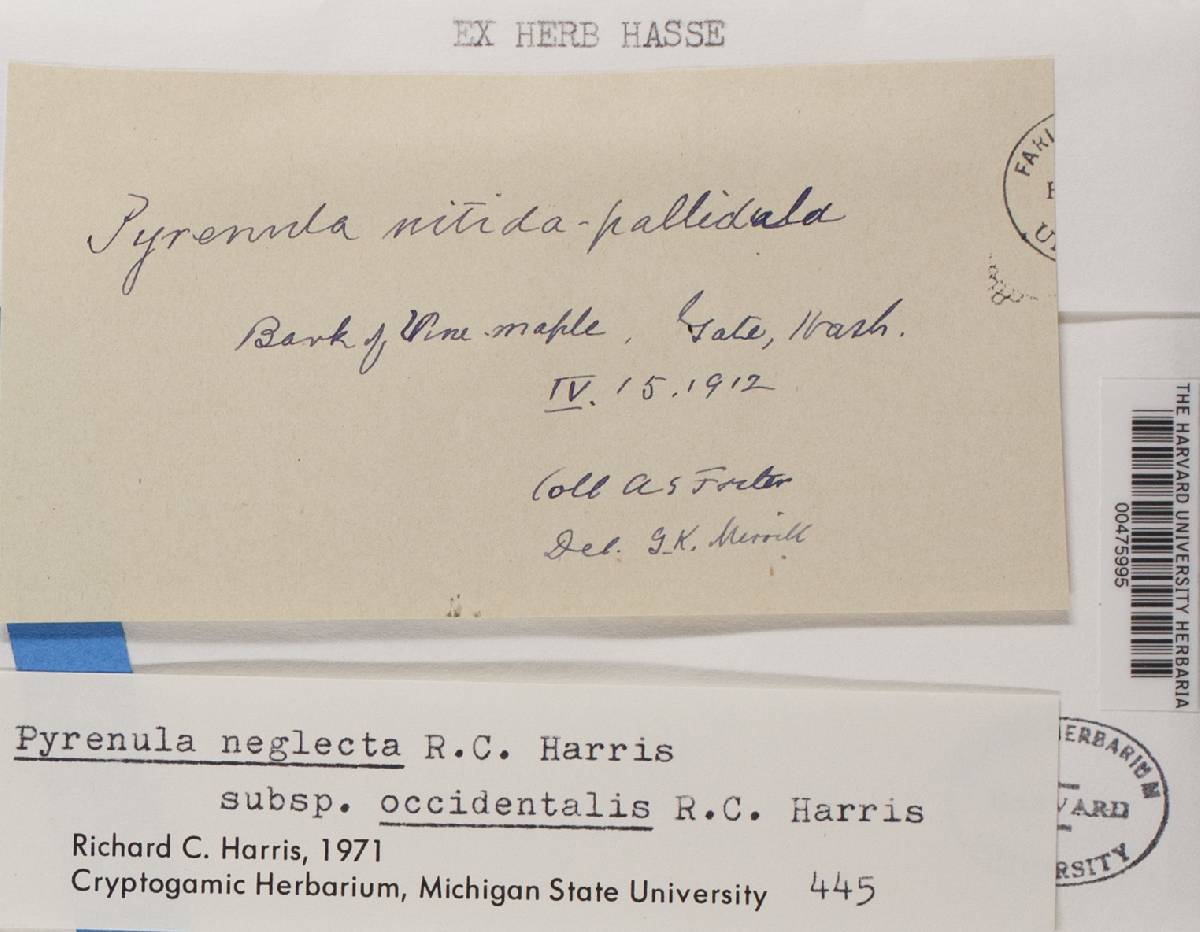 EX HERB HASSE
FARL
U
Pyrenula nitida-pallidula
Bark of Vine maple, Gate, Wash.
IV. 15. 1912
Coll A S Foster
Det. G.K. Merrill
THE HARVARD UNIVERSITY HERBARIA
00475995
Pyrenula neglecta R.C. Harris
subsp. occidentalis R.C. Harris
Richard C. Harris, 1971
Cryptogamic Herbarium, Michigan State University 445
ERBARIUM
VARD
RSITY